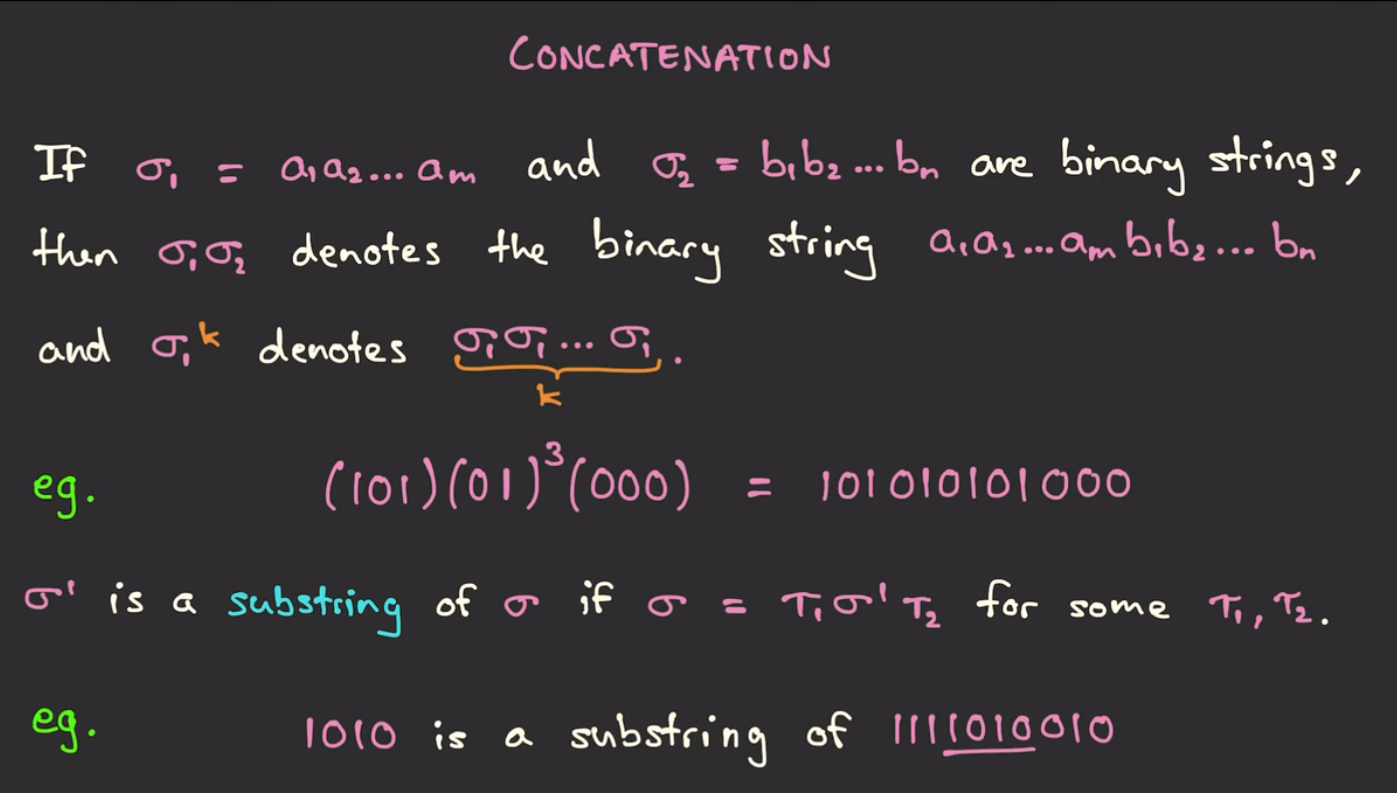 CONCATENATION
If σ₁ = a₁a₂...aₘ and σ₂ = b₁b₂...bₙ are binary strings,
then σ₁σ₂ denotes the binary string a₁a₂...aₘb₁b₂...bₙ
and σ₁ᵏ denotes σ₁σ₁...σ₁.
k
eg. (101)(01)³(000) = 101010101000
σ' is a substring of σ if σ = τ₁σ'τ₂ for some τ₁,τ₂.
eg. 1010 is a substring of 1111010010